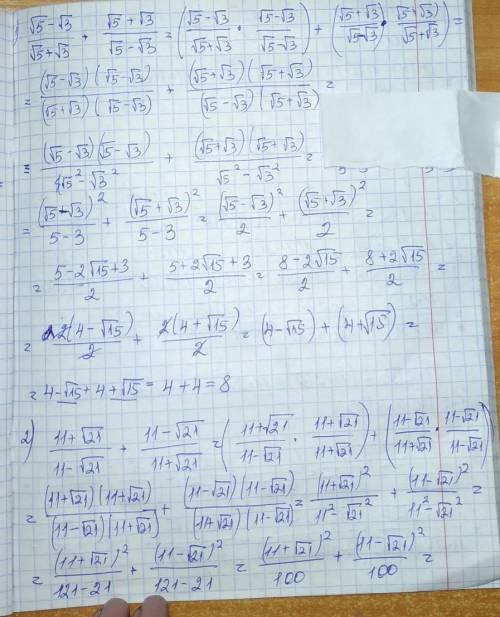 1) (√5-√3)/(√5+√3) + (√5+√3)/(√5-√3) = ((√5-√3)/(√5+√3) · (√5-√3)/(√5-√3)) + ((√5+√3)/(√5-√3) · (√5+√3)/(√5+√3)) =
= (√5-√3)(√5-√3)/(√5+√3)(√5-√3) + (√5+√3)(√5+√3)/(√5-√3)(√5+√3) =
= (√5-√3)(√5-√3)/(√5²-√3²) + (√5+√3)(√5+√3)/(√5²-√3²) =
= (√5-√3)²/(5-3) + (√5+√3)²/(5-3) = (√5-√3)²/2 + (√5+√3)²/2 =
= (5-2√15+3)/2 + (5+2√15+3)/2 = (8-2√15)/2 + (8+2√15)/2 =
= 2(4-√15)/2 + 2(4+√15)/2 = (4-√15) + (4+√15) =
= 4-√15+4+√15 = 4+4 = 8
2) (11+√21)/(11-√21) + (11-√21)/(11+√21) = ((11+√21)/(11-√21) · (11+√21)/(11+√21)) + ((11-√21)/(11+√21) · (11-√21)/(11-√21)) =
= (11+√21)(11+√21)/(11-√21)(11+√21) + (11-√21)(11-√21)/(11+√21)(11-√21) = (11+√21)²/(11²-√21²) + (11-√21)²/(11²-√21²) =
= (11+√21)²/(121-21) + (11-√21)²/(121-21) = (11+√21)²/100 + (11-√21)²/100 =